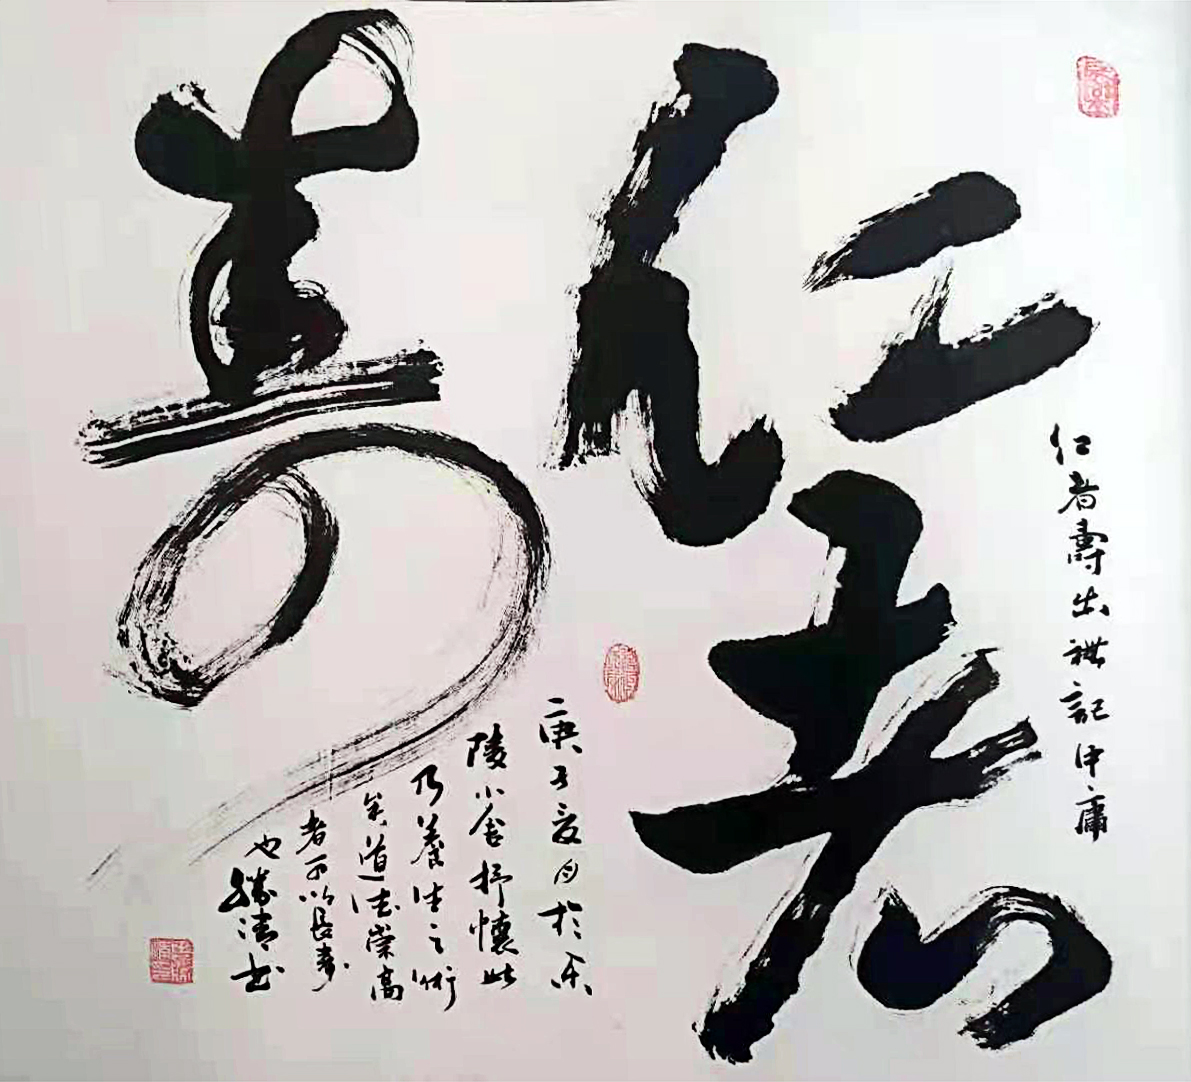 仁者
壽
仁者壽出禮記中庸
庚子夏月於乐
陵小舍抒懷此
乃養生之術
矣道德崇高
者可以長壽
也勝清书